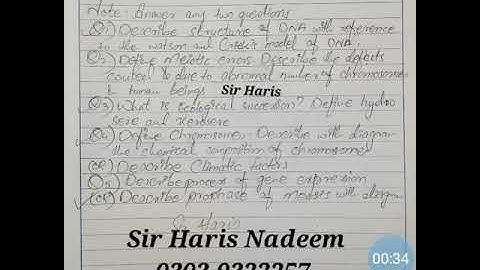 Note: Answer any two questions
Q1) Describe structure of DNA with reference
to the watson and Crick's model of DNA.
Q2) Define Meiotic errors Describe the defects
caused due to abnormal number of chromosomes
in human beings
Sir Haris
Q3) What is Ecological succession? Define hydro
sere and Xerosere
Q4) Define Chromosome. Describe with diagram
the chemical composition of chromosomes
(OR) Describe Climatic factors
Q5) Describe process of gene expression
(OR) Describe prophase of meiosis with diagram
Sir Haris
Sir Haris Nadeem
00:34